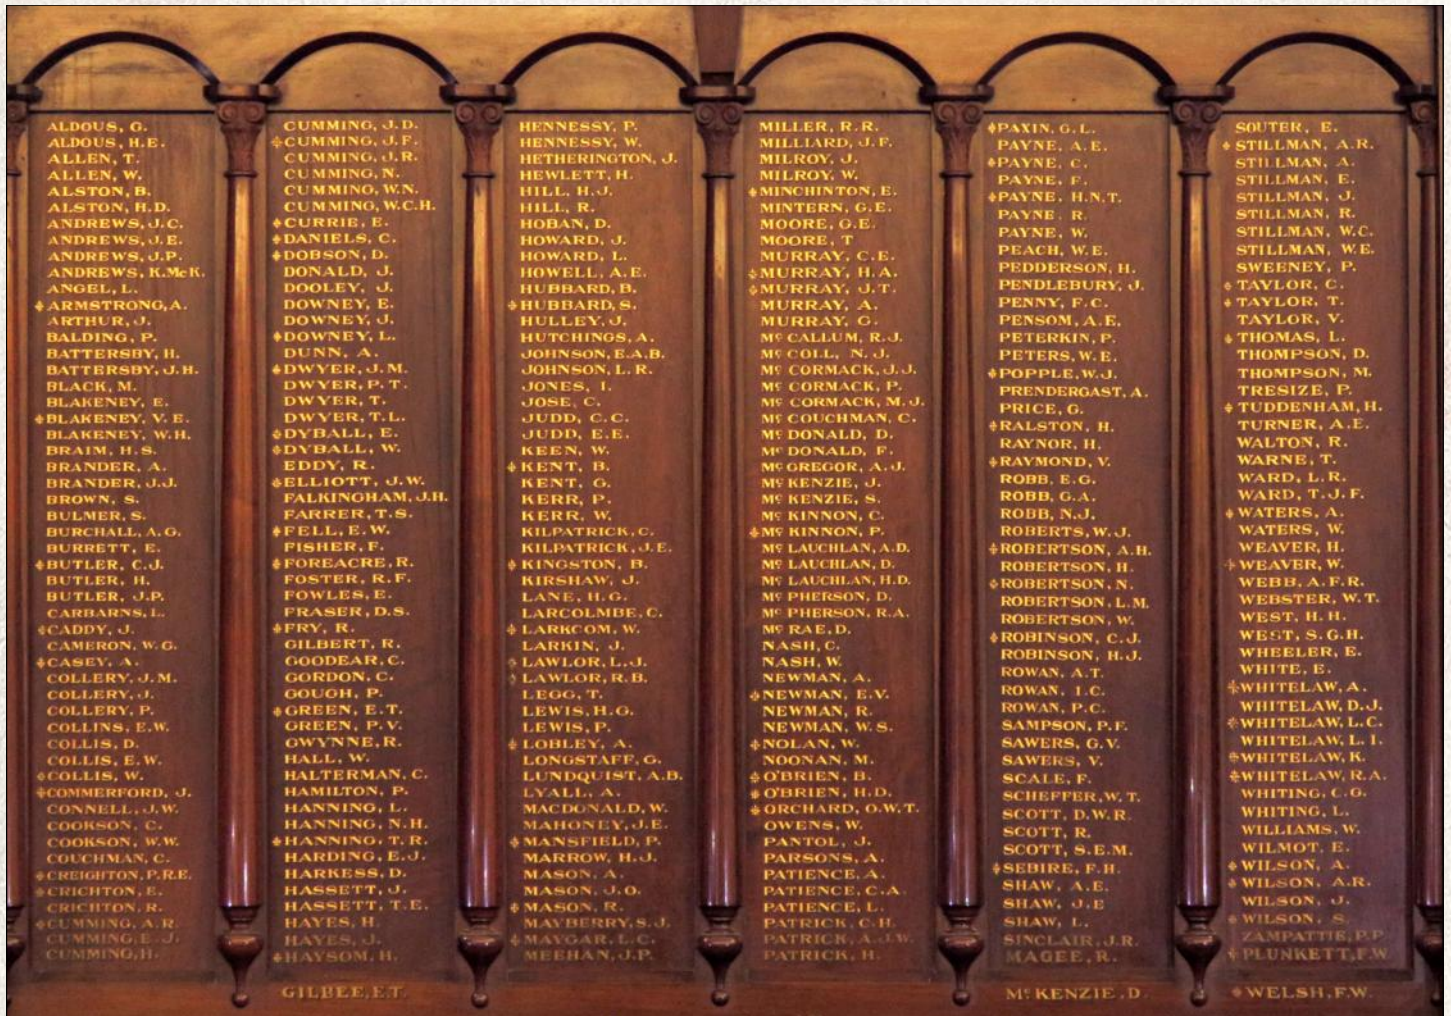 ALDOUS, G.
ALDOUS, H.E.
ALLEN, T.
ALLEN, W.
ALSTON, B.
ALSTON, H.D.
ANDREWS, J.C.
ANDREWS, J.E.
ANDREWS, J.P.
ANDREWS, K.McK.
ANGEL, L.
ARMSTRONG, A.
ARTHUR, J.
BALDING, P.
BATTERSBY, H.
BATTERSBY, J.H.
BLACK, M.
BLAKENEY, E.
BLAKENEY, V.E.
BLAKENEY, W.H.
BRAIM, H.S.
BRANDER, A.
BRANDER, J.J.
BROWN, S.
BULMER, S.
BURCHALL, A.G.
BURRETT, E.
BUTLER, C.J.
BUTLER, H.
BUTLER, J.P.
CARBARNS, L.
CADDY, J.
CAMERON, W.G.
CASEY, A.
COLLERY, J.M.
COLLERY, J.
COLLERY, P.
COLLINS, E.W.
COLLIS, D.
COLLIS, E.W.
COLLIS, W.
COMMERFORD, J.
CONNELL, J.W.
COOKSON, C.
COOKSON, W.W.
COUCHMAN, C.
CREIGHTON, P.R.E.
CRICHTON, E.
CRICHTON, R.
CUMMING, A.R.
CUMMING, E.J.
CUMMING, H.
CUMMING, J.D.
CUMMING, J.F.
CUMMING, J.R.
CUMMING, N.
CUMMING, W.N.
CUMMING, W.C.H.
CURRIE, E.
DANIELS, C.
DOBSON, D.
DONALD, J.
DOOLEY, J.
DOWNEY, E.
DOWNEY, J.
DOWNEY, L.
DUNN, A.
DWYER, J.M.
DWYER, P.T.
DWYER, T.
DWYER, T.L.
DYBALL, E.
DYBALL, W.
EDDY, R.
ELLIOTT, J.W.
FALKINGHAM, J.H.
FARRER, T.S.
FELL, E.W.
FISHER, F.
FOREACRE, R.
FOSTER, R.F.
FOWLES, E.
FRASER, D.S.
FRY, R.
GILBERT, R.
GOODEAR, C.
GORDON, C.
GOUGH, P.
GREEN, E.T.
GREEN, P.V.
GWYNNE, R.
HALL, W.
HALTERMAN, C.
HAMILTON, P.
HANNING, L.
HANNING, N.H.
HANNING, T.R.
HARDING, E.J.
HARKESS, D.
HASSETT, J.
HASSETT, T.E.
HAYES, H.
HAYES, J.
HAYSOM, H.
GILBEE, E.T.
HENNESSY, P.
HENNESSY, W.
HETHERINGTON, J.
HEWLETT, H.
HILL, H.J.
HILL, R.
HOBAN, D.
HOWARD, J.
HOWARD, L.
HOWELL, A.E.
HUBBARD, B.
HUBBARD, S.
HULLEY, J.
HUTCHINGS, A.
JOHNSON, E.A.B.
JOHNSON, L.R.
JONES, I.
JOSE, C.
JUDD, C.C.
JUDD, E.E.
KEEN, W.
KENT, B.
KENT, G.
KERR, P.
KERR, W.
KILPATRICK, C.
KILPATRICK, J.E.
KINGSTON, B.
KIRSHAW, J.
LANE, H.G.
LARCOLMBE, C.
LARKCOM, W.
LARKIN, J.
LAWLOR, L.J.
LAWLOR, R.B.
LEGG, T.
LEWIS, H.G.
LEWIS, P.
LOBLEY, A.
LONGSTAFF, G.
LUNDQUIST, A.B.
LYALL, A.
MACDONALD, W.
MAHONEY, J.E.
MANSFIELD, P.
MARROW, H.J.
MASON, A.
MASON, J.O.
MASON, R.
MAYBERRY, S.J.
MAYGAR, L.C.
MEEHAN, J.P.
MILLER, R.R.
MILLIARD, J.F.
MILROY, J.
MILROY, W.
MINCHINTON, E.
MINTERN, G.E.
MOORE, G.E.
MOORE, T
MURRAY, C.E.
MURRAY, H.A.
MURRAY, J.T.
MURRAY, A.
MURRAY, G.
Mc CALLUM, R.J.
Mc COLL, N.J.
Mc CORMACK, J.J.
Mc CORMACK, P.
Mc CORMACK, M.J.
Mc COUCHMAN, C.
Mc DONALD, D.
Mc DONALD, F.
Mc GREGOR, A.J.
Mc KENZIE, J.
Mc KENZIE, S.
Mc KINNON, C.
Mc KINNON, P.
Mc LAUCHLAN, A.D.
Mc LAUCHLAN, D.
Mc LAUCHLAN, H.D.
Mc PHERSON, D.
Mc PHERSON, R.A.
Mc RAE, D.
NASH, C.
NASH, W.
NEWMAN, A.
NEWMAN, E.V.
NEWMAN, R.
NEWMAN, W.S.
NOLAN, W.
NOONAN, M.
O'BRIEN, B.
O'BRIEN, H.D.
ORCHARD, O.W.T.
OWENS, W.
PANTOL, J.
PARSONS, A.
PATIENCE, A.
PATIENCE, C.A.
PATIENCE, L.
PATRICK, C.H.
PATRICK, A.J.W.
PATRICK, H.
PAXIN, G.L.
PAYNE, A.E.
PAYNE, C.
PAYNE, F.
PAYNE, H.N.T.
PAYNE, R.
PAYNE, W.
PEACH, W.E.
PEDDERSON, H.
PENDLEBURY, J.
PENNY, F.C.
PENSOM, A.E.
PETERKIN, P.
PETERS, W.E.
POPPLE, W.J.
PRENDERGAST, A.
PRICE, G.
RALSTON, H.
RAYNOR, H.
RAYMOND, V.
ROBB, E.G.
ROBB, G.A.
ROBB, N.J.
ROBERTS, W.J.
ROBERTSON, A.H.
ROBERTSON, H.
ROBERTSON, N.
ROBERTSON, L.M.
ROBERTSON, W.
ROBINSON, C.J.
ROBINSON, H.J.
ROWAN, A.T.
ROWAN, I.C.
ROWAN, P.C.
SAMPSON, P.F.
SAWERS, G.V.
SAWERS, V.
SCALE, F.
SCHEFFER, W.T.
SCOTT, D.W.R.
SCOTT, R.
SCOTT, S.E.M.
SEBIRE, F.H.
SHAW, A.E.
SHAW, J.E
SHAW, L.
SINCLAIR, J.R.
MAGEE, R.
Mc KENZIE, D.
SOUTER, E.
STILLMAN, A.R.
STILLMAN, A.
STILLMAN, E.
STILLMAN, J.
STILLMAN, R.
STILLMAN, W.C.
STILLMAN, W.E.
SWEENEY, P.
TAYLOR, C.
TAYLOR, T.
TAYLOR, V.
THOMAS, L.
THOMPSON, D.
THOMPSON, M.
TRESIZE, P.
TUDDENHAM, H.
TURNER, A.E.
WALTON, R.
WARNE, T.
WARD, L.R.
WARD, T.J.F.
WATERS, A.
WATERS, W.
WEAVER, H.
WEAVER, W.
WEBB, A.F.R.
WEBSTER, W.T.
WEST, H.H.
WEST, S.G.H.
WHEELER, E.
WHITE, E.
WHITELAW, A.
WHITELAW, D.J.
WHITELAW, L.C.
WHITELAW, L.I.
WHITELAW, K.
WHITELAW, R.A.
WHITING, C.G.
WHITING, L.
WILLIAMS, W.
WILMOT, E.
WILSON, A.
WILSON, A.R.
WILSON, J.
WILSON, S.
ZAMPATTIE, P.P.
PLUNKETT, F.W.
WELSH, F.W.